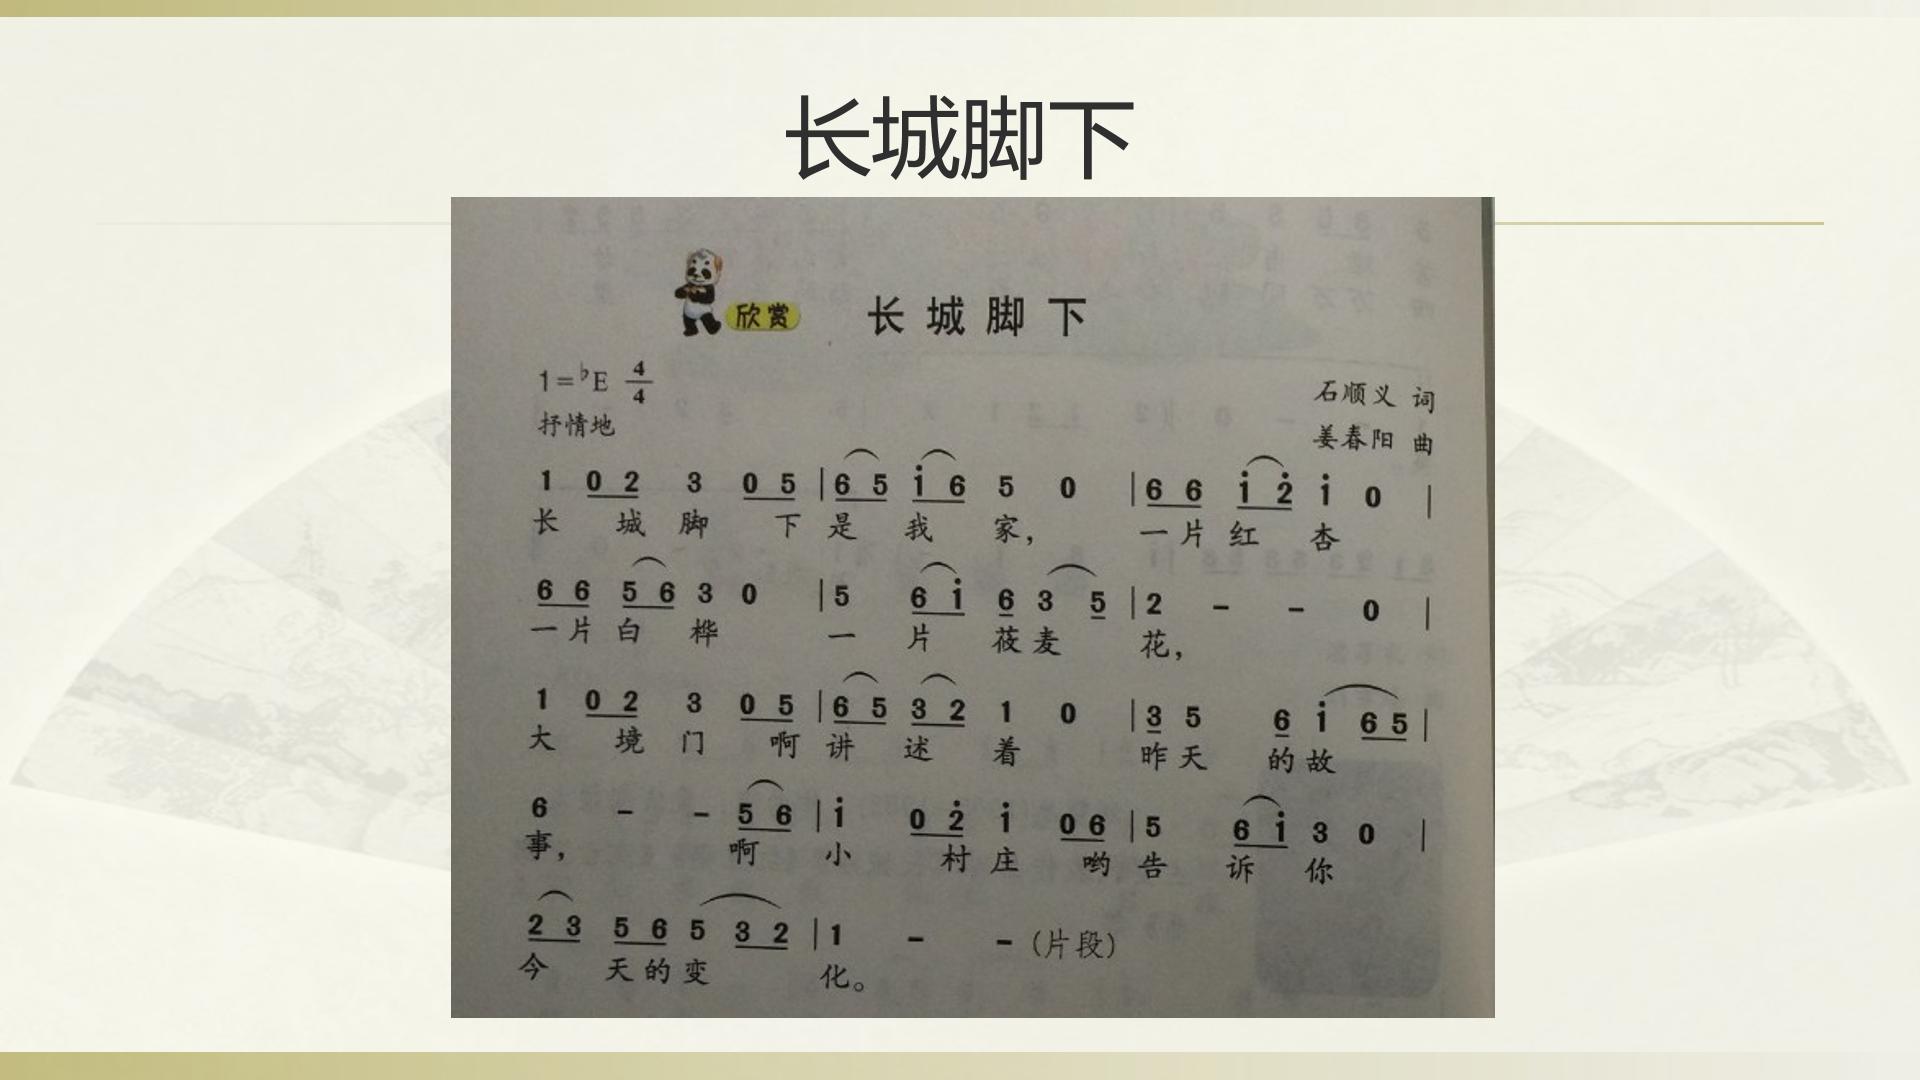 长城脚下
欣赏 长城脚下
1=♭E 4/4
石顺义 词
抒情地
姜春阳 曲
1 0 2 3 0 5 | 6 5 i 6 5 0 | 6 6 i 2̇ i 0 |
长 城 脚 下 是 我 家， 一 片 红 杏
6 6 5 6 3 0 | 5 6 i 6 3 5 | 2 - - 0 |
一 片 白 桦 一 片 莜 麦 花，
1 0 2 3 0 5 | 6 5 3 2 1 0 | 3 5 6 i 6 5 |
大 境 门 啊 讲 述 着 昨 天 的 故
6 - - 5 6 | i 0 2̇ i 0 6 | 5 6 i 3 0 |
事， 啊 小 村 庄 哟 告 诉 你
2 3 5 6 5 3 2 | 1 - - （片段）
今 天 的 变 化。